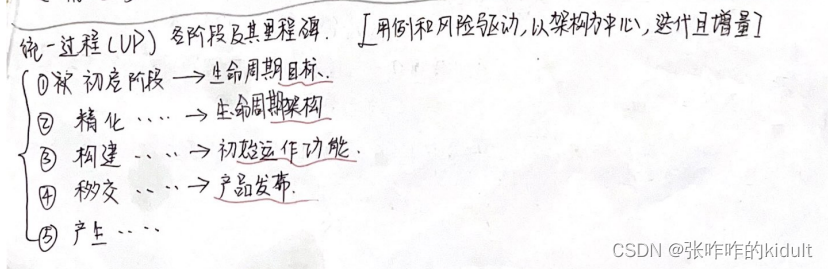 统一过程(UP) 各阶段及其里程碑. [用例和风险驱动,以架构为中心,迭代且增量]
①初启阶段→生命周期目标.
② 精化 ‥‥→生命周期架构
③ 构建 ‥‥→初始运作功能.
④ 移交 ‥‥→产品发布.
⑤ 产生 ‥‥
CSDN @张咋咋的kidult